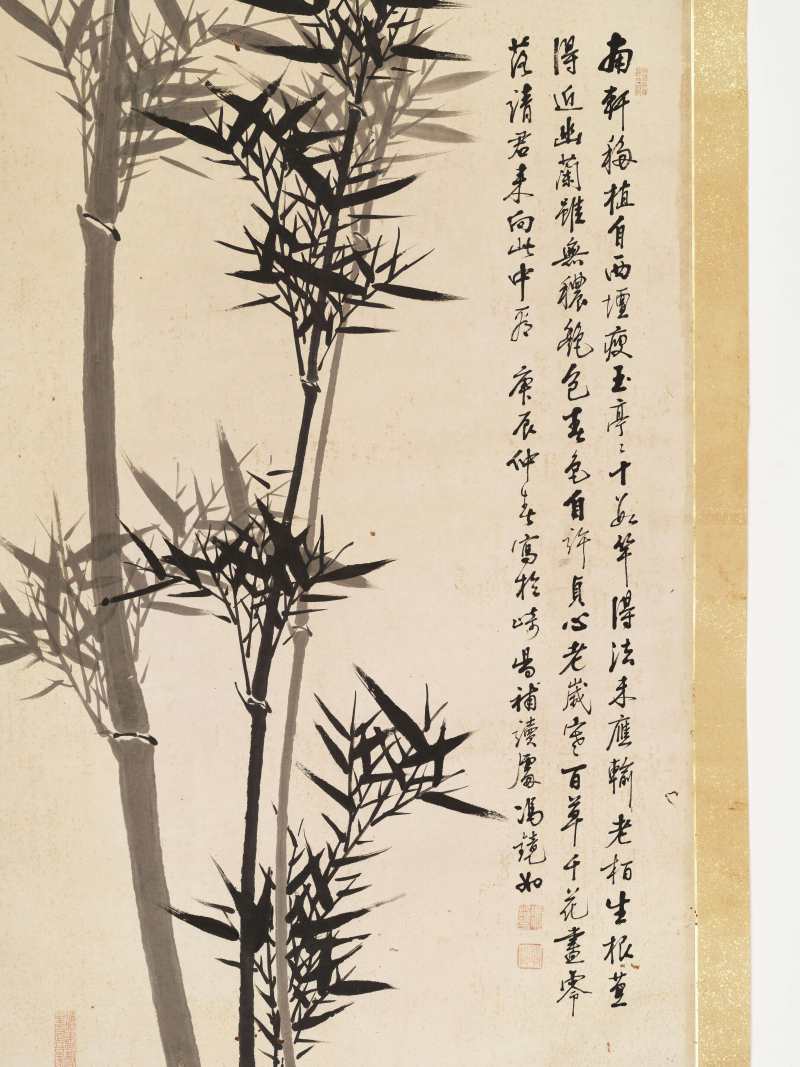 南軒移植自西壇瘦玉亭〻十数竿得法未應輸老栢生根兼
得近幽蘭雖無穠艷色春色自許貞心老歲寒百草千花盡零
落請君来向此中看 庚辰仲春寫於崎陽補讀廬馮鏡如